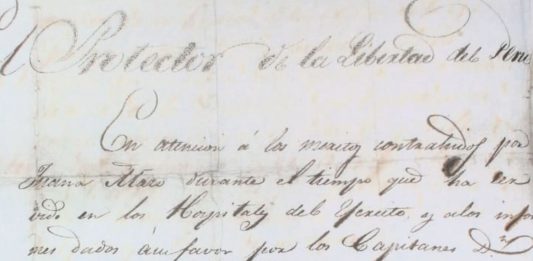 El Protector de la Libertad del Peru
En atencion á los meritos contrahidos por
Juana durante el tiempo que ha ser
vido en los Hospitales del Ejercito, y a los infor
mes dados á su favor por los Capitanes D.n